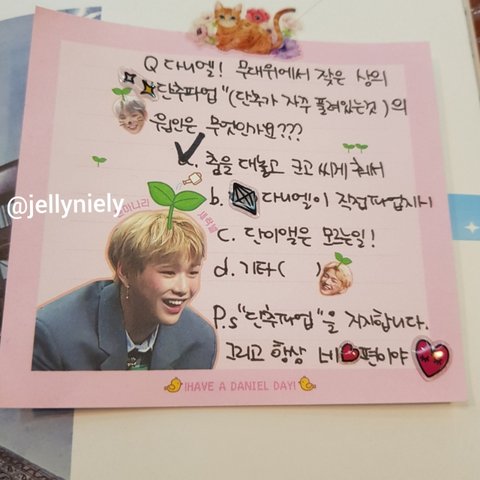 Q 다니엘! 무대위에서 잦은 상의
"단추파업"(단추가 자주 풀려있는것)의
원인은 무엇인가요???
a. 춤을 대놓고 크고 씨게 춰서
@jellyniely
b. 다니엘이 직접파업지시
c. 단이앨은 모르는일!
d. 기타( )
P.s "단추파업"을 지지합니다.
그리고 항상 네 편이야
!HAVE A DANIEL DAY!